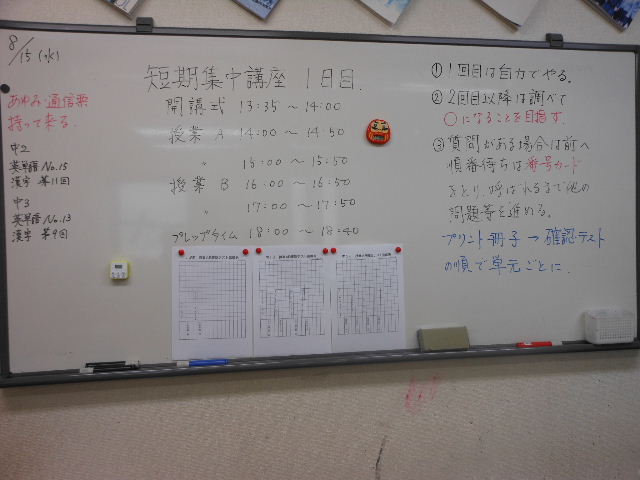 8/15 (水)
あゆみ・通信票
持って来る.
中2
英単語 No.15
漢字 第11回
中3
英単語 No.13
漢字 第9回
短期集中講座 1日目.
開講式 13:35 〜 14:00
授業 A 14:00 〜 14:50
〃 15:00 〜 15:50
授業 B 16:00 〜 16:50
〃 17:00 〜 17:50
プレップタイム 18:00 〜 18:40
① 1回目は自力でやる.
② 2回目以降は調べて
○になることを目指す.
③ 質問がある場合は前へ
順番待ちは番号カード
をとり、呼ばれるまで他の
問題等を進める.
プリント冊子 → 確認テスト
の順で単元ごとに.